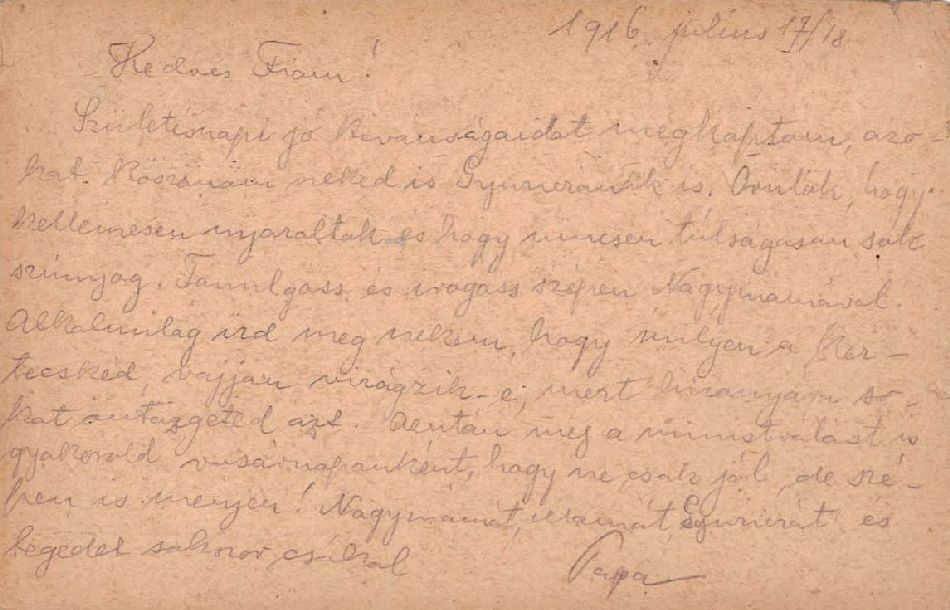 1916. július 17/18
Kedves Fiam!
Születésnapi jó kivánságaidat megkaptam, azo-
kat köszönöm neked is Gyuricának is. Örülök, hogy
kellemesen nyaraltok és hogy nincsen túlságosan sok
szúnyog. Tanulgass és irogass szépen Nagymamával.
Alkalmilag ird meg nekem, hogy milyen a ker-
tecskéd, vajjon virágzik-e, mert bizonyára so-
kat öntözgeted azt. Azután meg a ministrálást is
gyakorold vasárnaponként, hogy ne csak jól, de szé-
pen is menjen! Nagymamát, Mamát, Gyuricát és
tégedet sokszor csókol
Papa